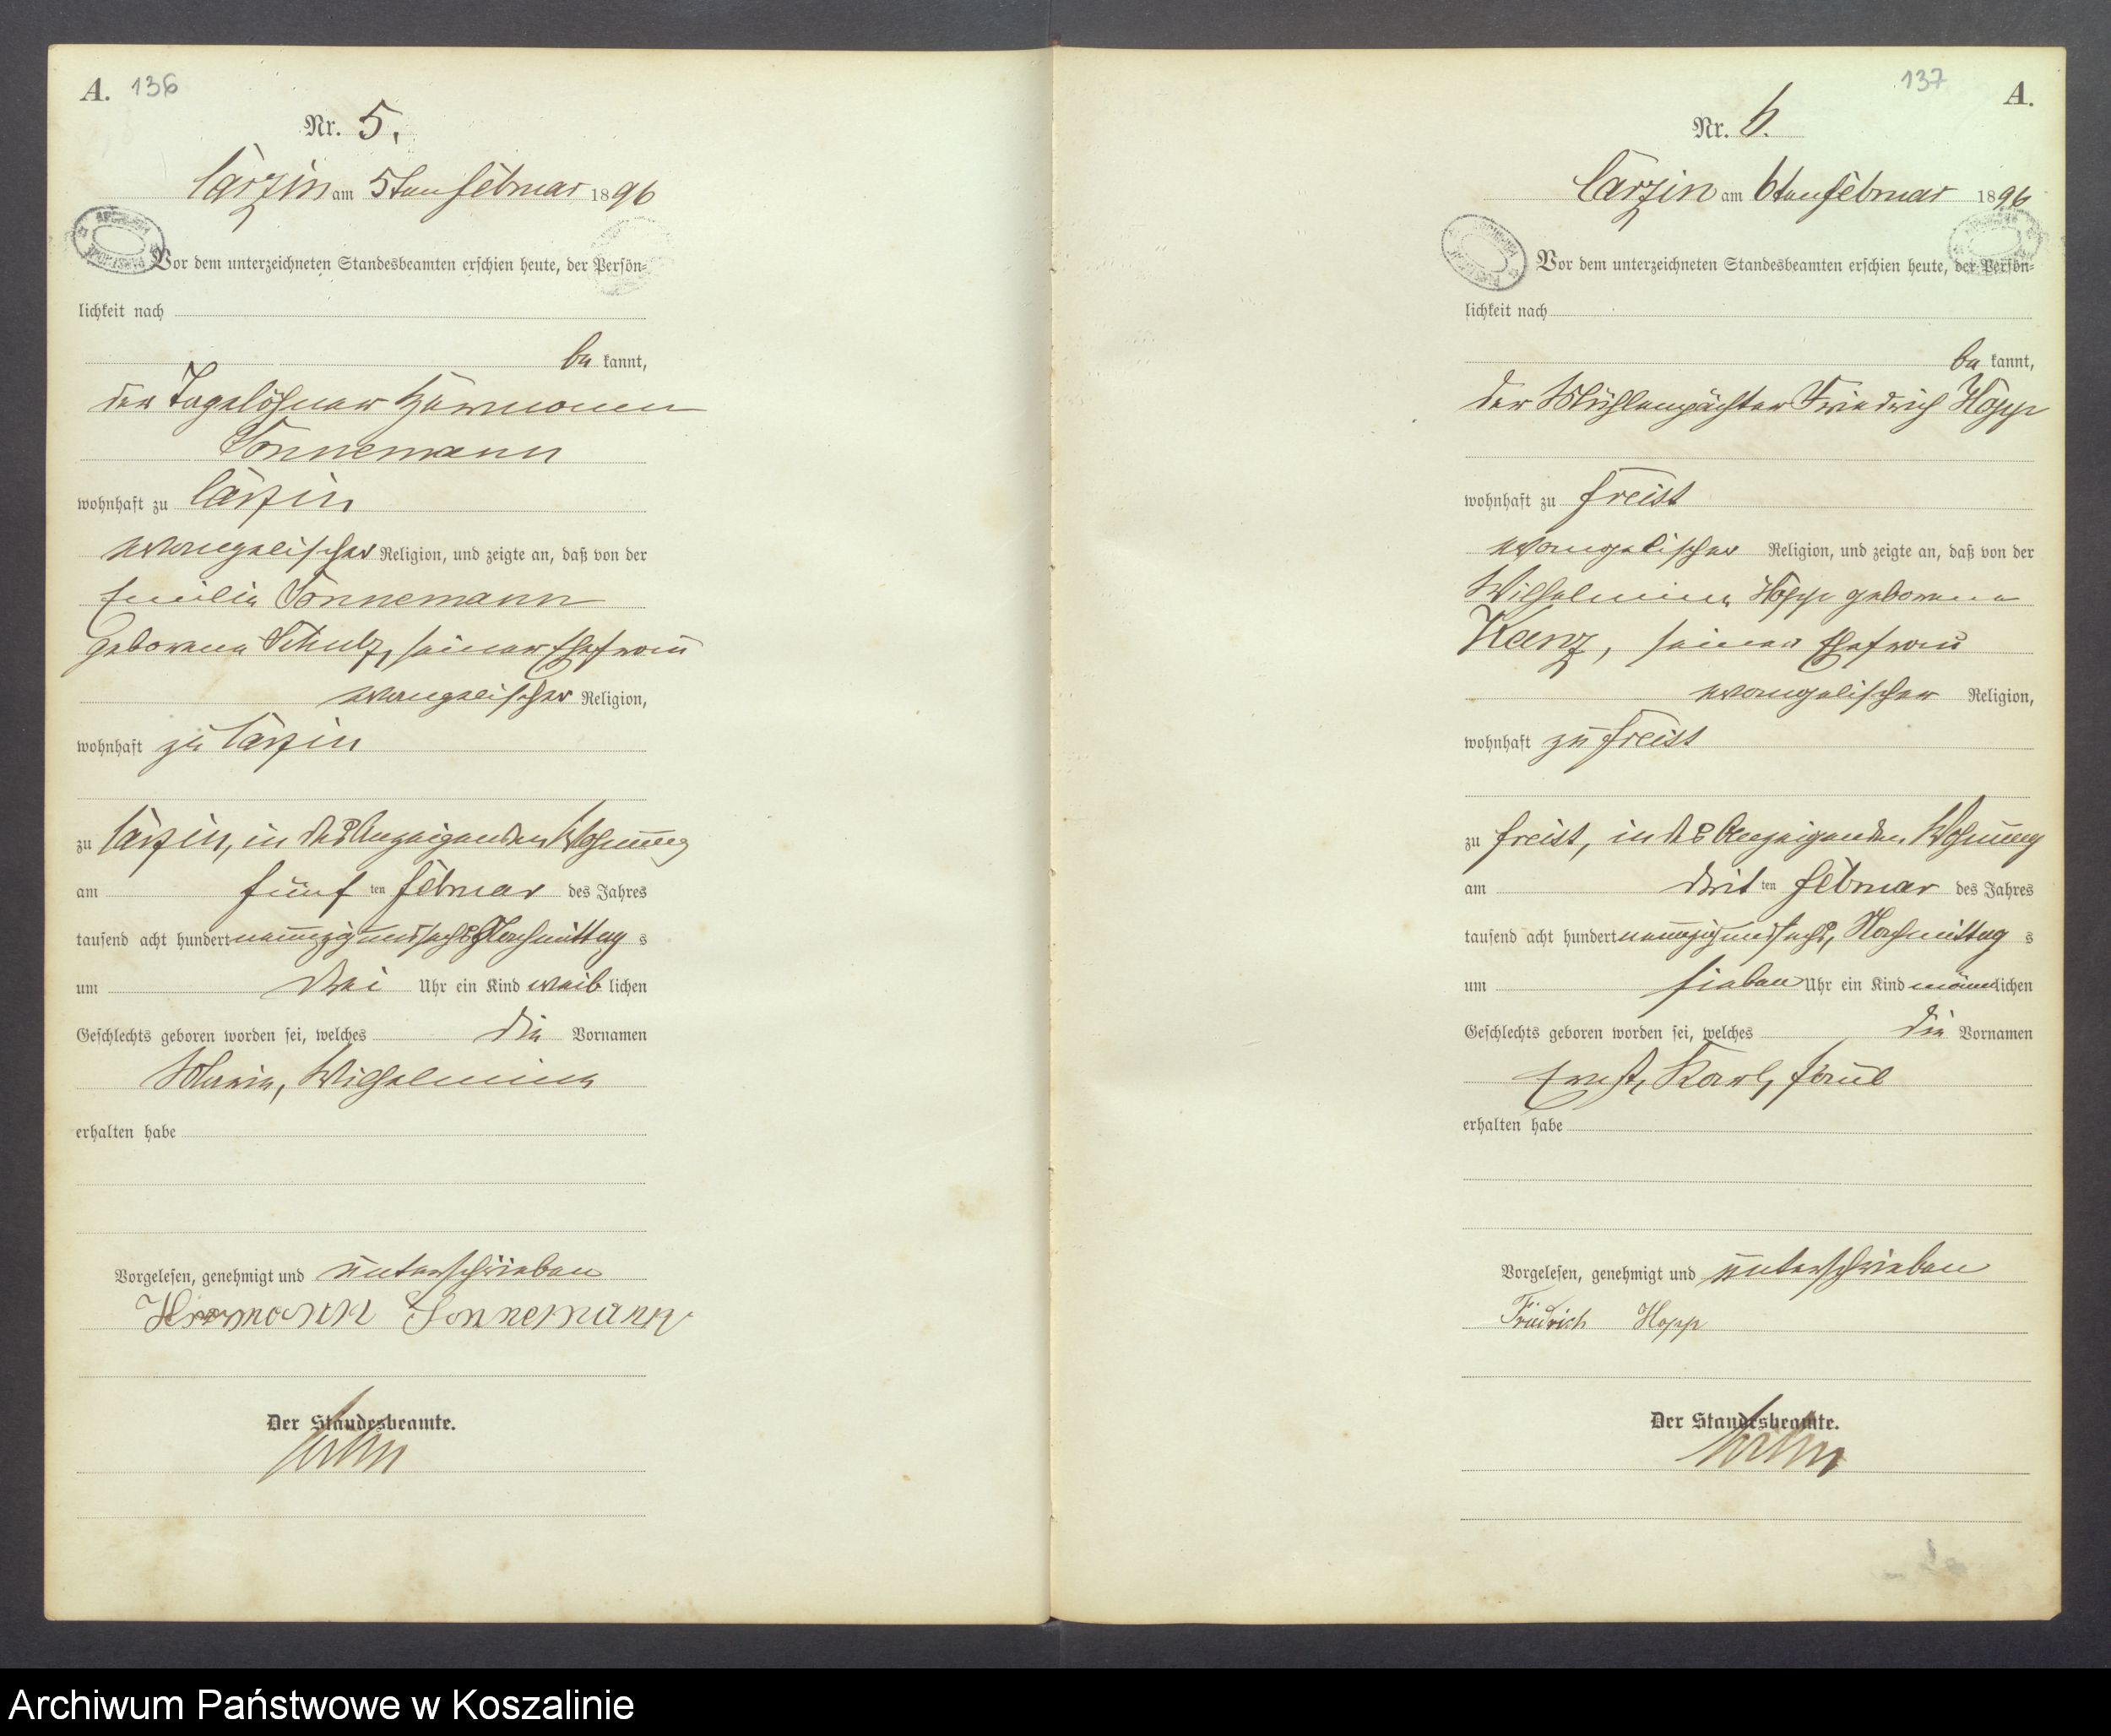 A. 136
Nr. 5.
Carzin am 5ten Februar 1896
Vor dem unterzeichneten Standesbeamten erschien heute, der Persön=
lichkeit nach
be kannt,
der Tagelöhner Hermann
Sonnemann
wohnhaft zu Carzin
evangelischer Religion, und zeigte an, daß von der
Emilie Sonnemann
geborene Schulz, seiner Ehefrau
evangelischer Religion,
wohnhaft zu Carzin
zu Carzin, in des Anzeigenden Wohnung
am fünf ten Februar des Jahres
tausend acht hundert neunzig und sechs Nachmittag s
um drei Uhr ein Kind weib lichen
Geschlechts geboren worden sei, welches die Vornamen
Marie, Wilhelmine
erhalten habe
Vorgelesen, genehmigt und unterschrieben
Hermann Sonnemann
Der Standesbeamte.
137 A.
Nr. 6.
Carzin am 6ten Februar 1896
Vor dem unterzeichneten Standesbeamten erschien heute, der Persön=
lichkeit nach
be kannt,
der Mühlenpächter Friedrich Hopp
wohnhaft zu Freist
evangelischer Religion, und zeigte an, daß von der
Wilhelmine Hopp geborene
Kanz, seiner Ehefrau
evangelischer Religion,
wohnhaft zu Freist
zu Freist, in des Anzeigenden Wohnung
am drit ten Februar des Jahres
tausend acht hundert neunzig und sechs, Nachmittag s
um sieben Uhr ein Kind männ lichen
Geschlechts geboren worden sei, welches die Vornamen
Ernst, Karl, Paul
erhalten habe
Vorgelesen, genehmigt und unterschrieben
Friedrich Hopp
Der Standesbeamte.
Archiwum Państwowe w Koszalinie